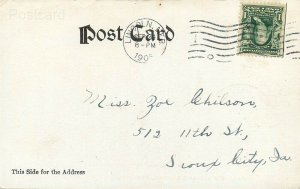 Post Card
LINCOLN,
8-PM
190
Miss. Zoe Chilson,
512 11th St,
Sioux City, Ia.
This Side for the Address